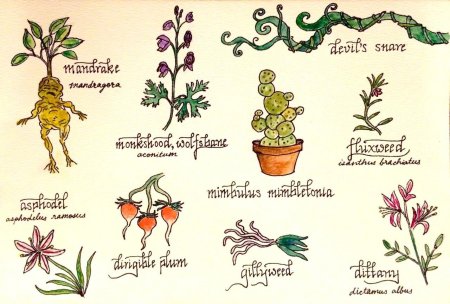 mandrake
mandragora
monkshood, wolfsbane
aconitum
devil's snare
fluxweed,
isanthus brachiatus
mimbulus mimbletonia
asphodel
asphodelus ramosus
dirigible plum
gillyweed
dittany
dictamus albus